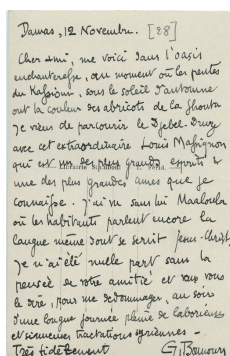 Damas, 12 Novembre. [28]
Cher ami, me voici dans l'oasis
enchanteresse, au moment où les pentes
du Kassioun, sous le soleil d'automne
ont la couleur des abricots de la Ghouta
Je viens de parcourir le Djebel-Druze
avec cet extraordinaire Louis Massignon
qui est un des plus grands esprits &
une des plus grandes âmes que je
connaisse. J'ai vu sans lui Maaloula
où les habitants parlent encore la
langue même dont se servit Jésus-Christ
Je n'ai été nulle part sans la
pensée de votre amitié et veux vous
le dire, pour me dédommager, au soir
d'une longue journée pleine de laborieuses
et sinueuses tractations syriennes —
Très fidèlement G. Bounoure